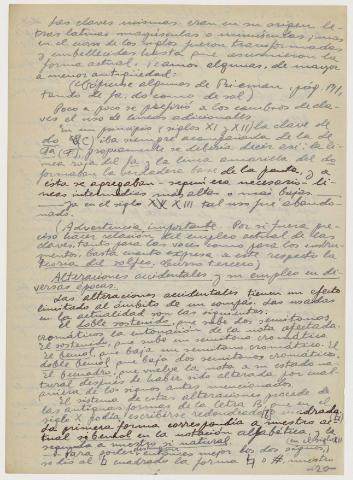 Las claves mismas eran en su origen le-
tras latinas mayúsculas o minúsculas, mas
en el curso de los siglos fueron transformadas
y embellecidas hasta que asumieron la
forma actual. Veamos algunas, de mayor
a menor antigüedad:
(Cópiense algunas de Riemann pág. 191,
tando de fa, do como de sol)
Poco a poco se prefirió a los cambios de cla-
ves el uso de líneas adicionales.
En un principio (siglos XI y XII) la clave de
do (C) iba siempre acompañada de la de
fa (F), propiamente se debería decir así: la lí-
nea roja del fa y la línea amarilla del do
formaban la verdadera base de la pauta, y a
ésta se agregaban según era necesario lí-
neas intermedias más altas o más bajas.
Ya en el siglo XIII tal uso fue abando-
nado.
(Advertencia importante. Por si fuera pre-
ciso hacer relación del empleo actual de las
claves, tanto para las voces como para los instru-
mentos, basta cuanto expresa a este respecto la
Teoría del solfeo, curso tercero)
Alteraciones accidentales y su empleo en di-
versas épocas.
Las alteraciones accidentales tienen un efecto
limitado al ámbito de un compás. Las usadas
en la actualidad son las siguientes:
El doble sostenido, que sube dos semitonos
cromáticos la entonación de la nota afectada.
El sostenido, que sube un semitono cromático.
El bemol, que baja un semitono cromático. El
doble bemol que baja dos semitonos cromáticos.
El becuadro, que vuelve la nota a su estado na-
tural después de haber sido alterada por cual-
quiera de los signos antes mencionados.
El sistema de estas alteraciones procede de
las antiguas formas de la letra B, que en el
siglo X podía escribirse redondeada o cuadrada.
La primera forma correspondía a nuestro ac-
tual si bemol en la notación alfabética, y la
segunda a nuestro si natural.
Para distinguir entonces mejor los dos signos,
se dio al B cuadrado la forma ♮ o #, nuestro
-20-